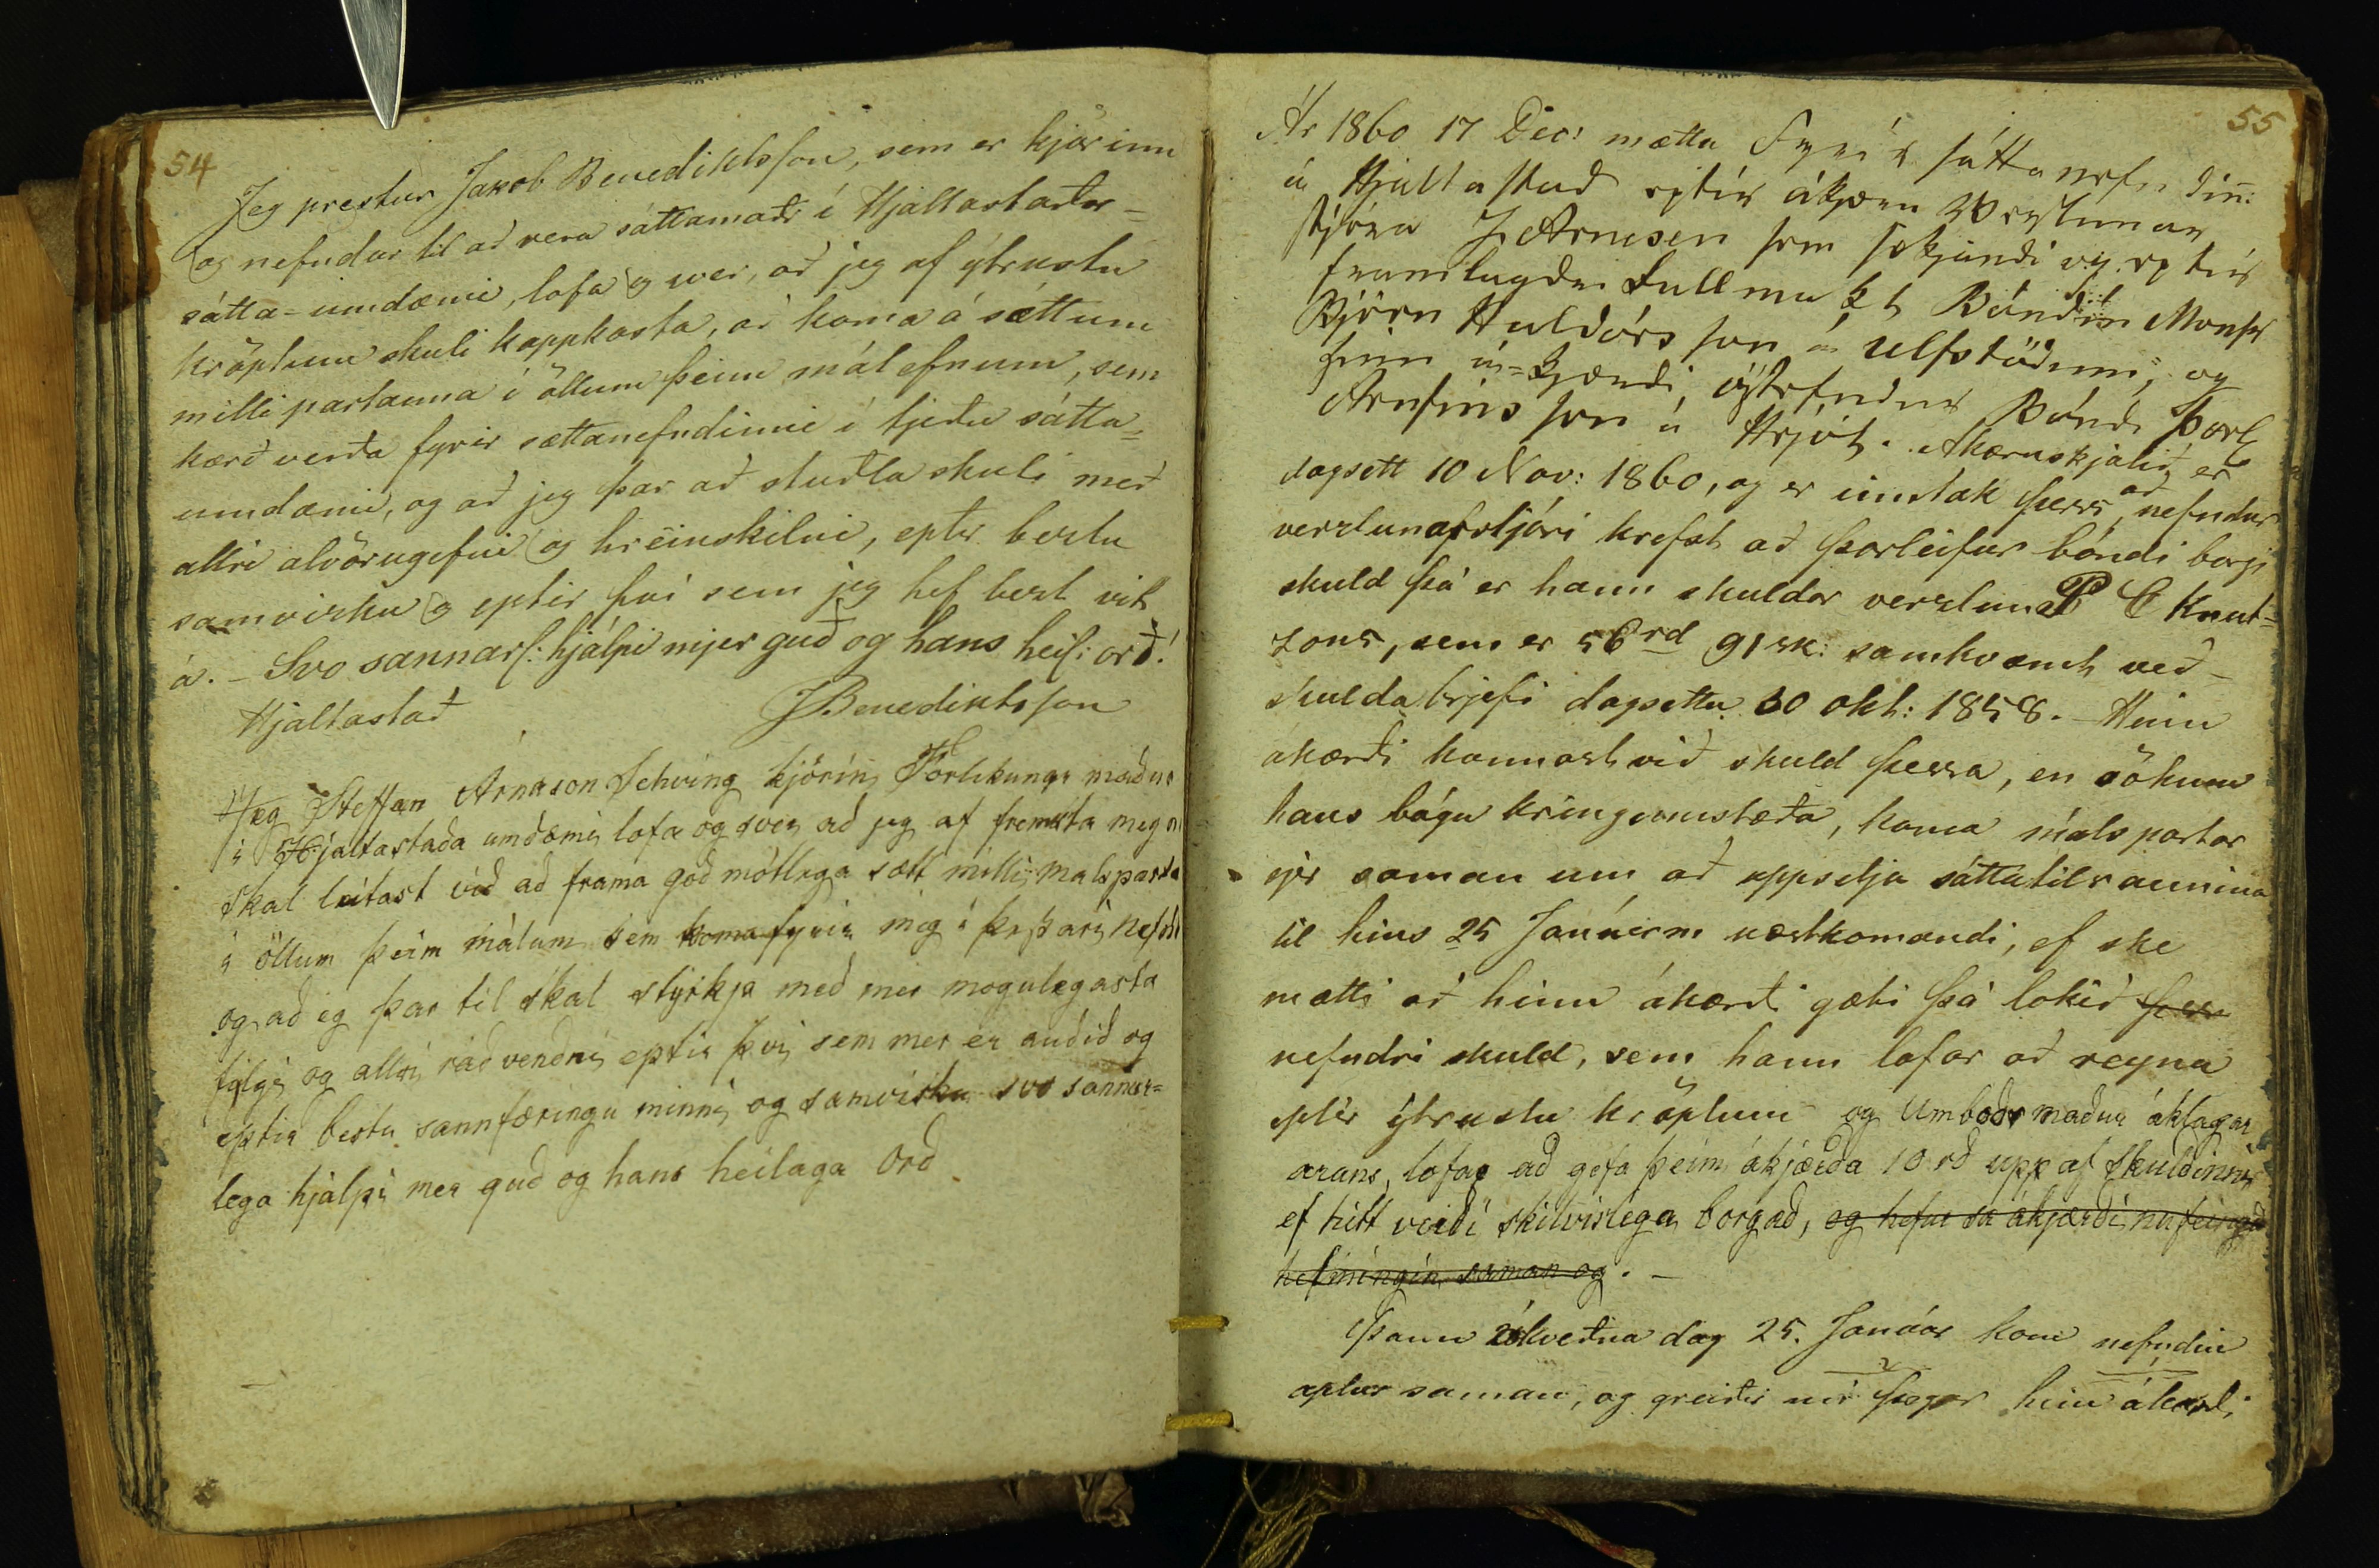 54
Jeg prestur Jakob Benediktsson, sem er kjörinn
og nefndur til að vera sáttamaðr í Hjaltastaðar=
sátta=umdæmi, lofa og sver, að jeg af ýtrustu
kröptum skuli kappkosta, að koma á sættum
milli partanna í öllum þeim málefnum, sem
kærð verða fyrir sættanefndinni í tjeðu sátta=
umdæmi, og að jeg þar að stuðla skuli með
allri alvörugefni og hreinskilni, eptir bestu
samvisku og eptir því sem jeg hef best vit
á. – Svo sannarl: hjálpi mjer guð og hans heil: orð!
Hjaltastað JBenediktsson
Jeg Steffan Árnason Schving kjörin Forlikungs maður
i Hjaltastaða umdæmi lofa og sver að jeg af fremsta megni
skal leitast við að frama góðmótlega sætt milli malsparta
i öllum þeim málum sem koma fyrir mig i þessari nefnd
og að eg þar til skal styrkja með mer mögulegasta
fylgi og allri ráðvendni eptir því sem mer er auðið og
eptir bestu sannfæringu minni og samvisku svo sannar=
lega hjálpi mer guð og hans heilaga Orð
55
Ár 1860 17 Dec: mætta Fyrir sáttanefndin:
á Hjaltastað eptir ákæru Verslunar
stjóra J Arnesen sem sekjandi og eptir
framlagðri Fullmakt Bóndin Monsr
Björn Halldórs son á Ulfstöðum, og
hinn á=kjærði, Bóndi Þorl
Arnfins son á Hrjót. Ákæruskjalið er
dagsett 10 Nov: 1860, og er inntak þess, að nefndur
verslunarstjóri krefst að Þorleifur bóndi borgi
skuld þá er hann skuldar verslun P C Knut=
zons, sem er 56rd 91 sk: samkvæmt veð-
skuldabrjefi dagsettu 30 okt: 1858. – Hinn
ákærði kannast við skuld þessa, en sökum
hans bágu kringumstæða, koma málspartar
sjer saman um að uppsetja sáttatilraunina
til hins 25 Janúarm næstkomandi, ef ske
mætti að hinn ákærði gæti þá lokið þess
nefndri skuld, sem hann lofar að reyna
eptir ýtrustu kröptum og Umboðsmaður áklagar
arans, lofar að gefa þeim ákjærða 10 rd upp af skuldinni
ef hitt verði skilvislega borgað, og hefur sá ákjærði nu feingið
helmingin saman og. –
Þann ákveðna dag 25. Janúar kom nefndin
aptur saman, og greiðir nú þegar hinn ákærði